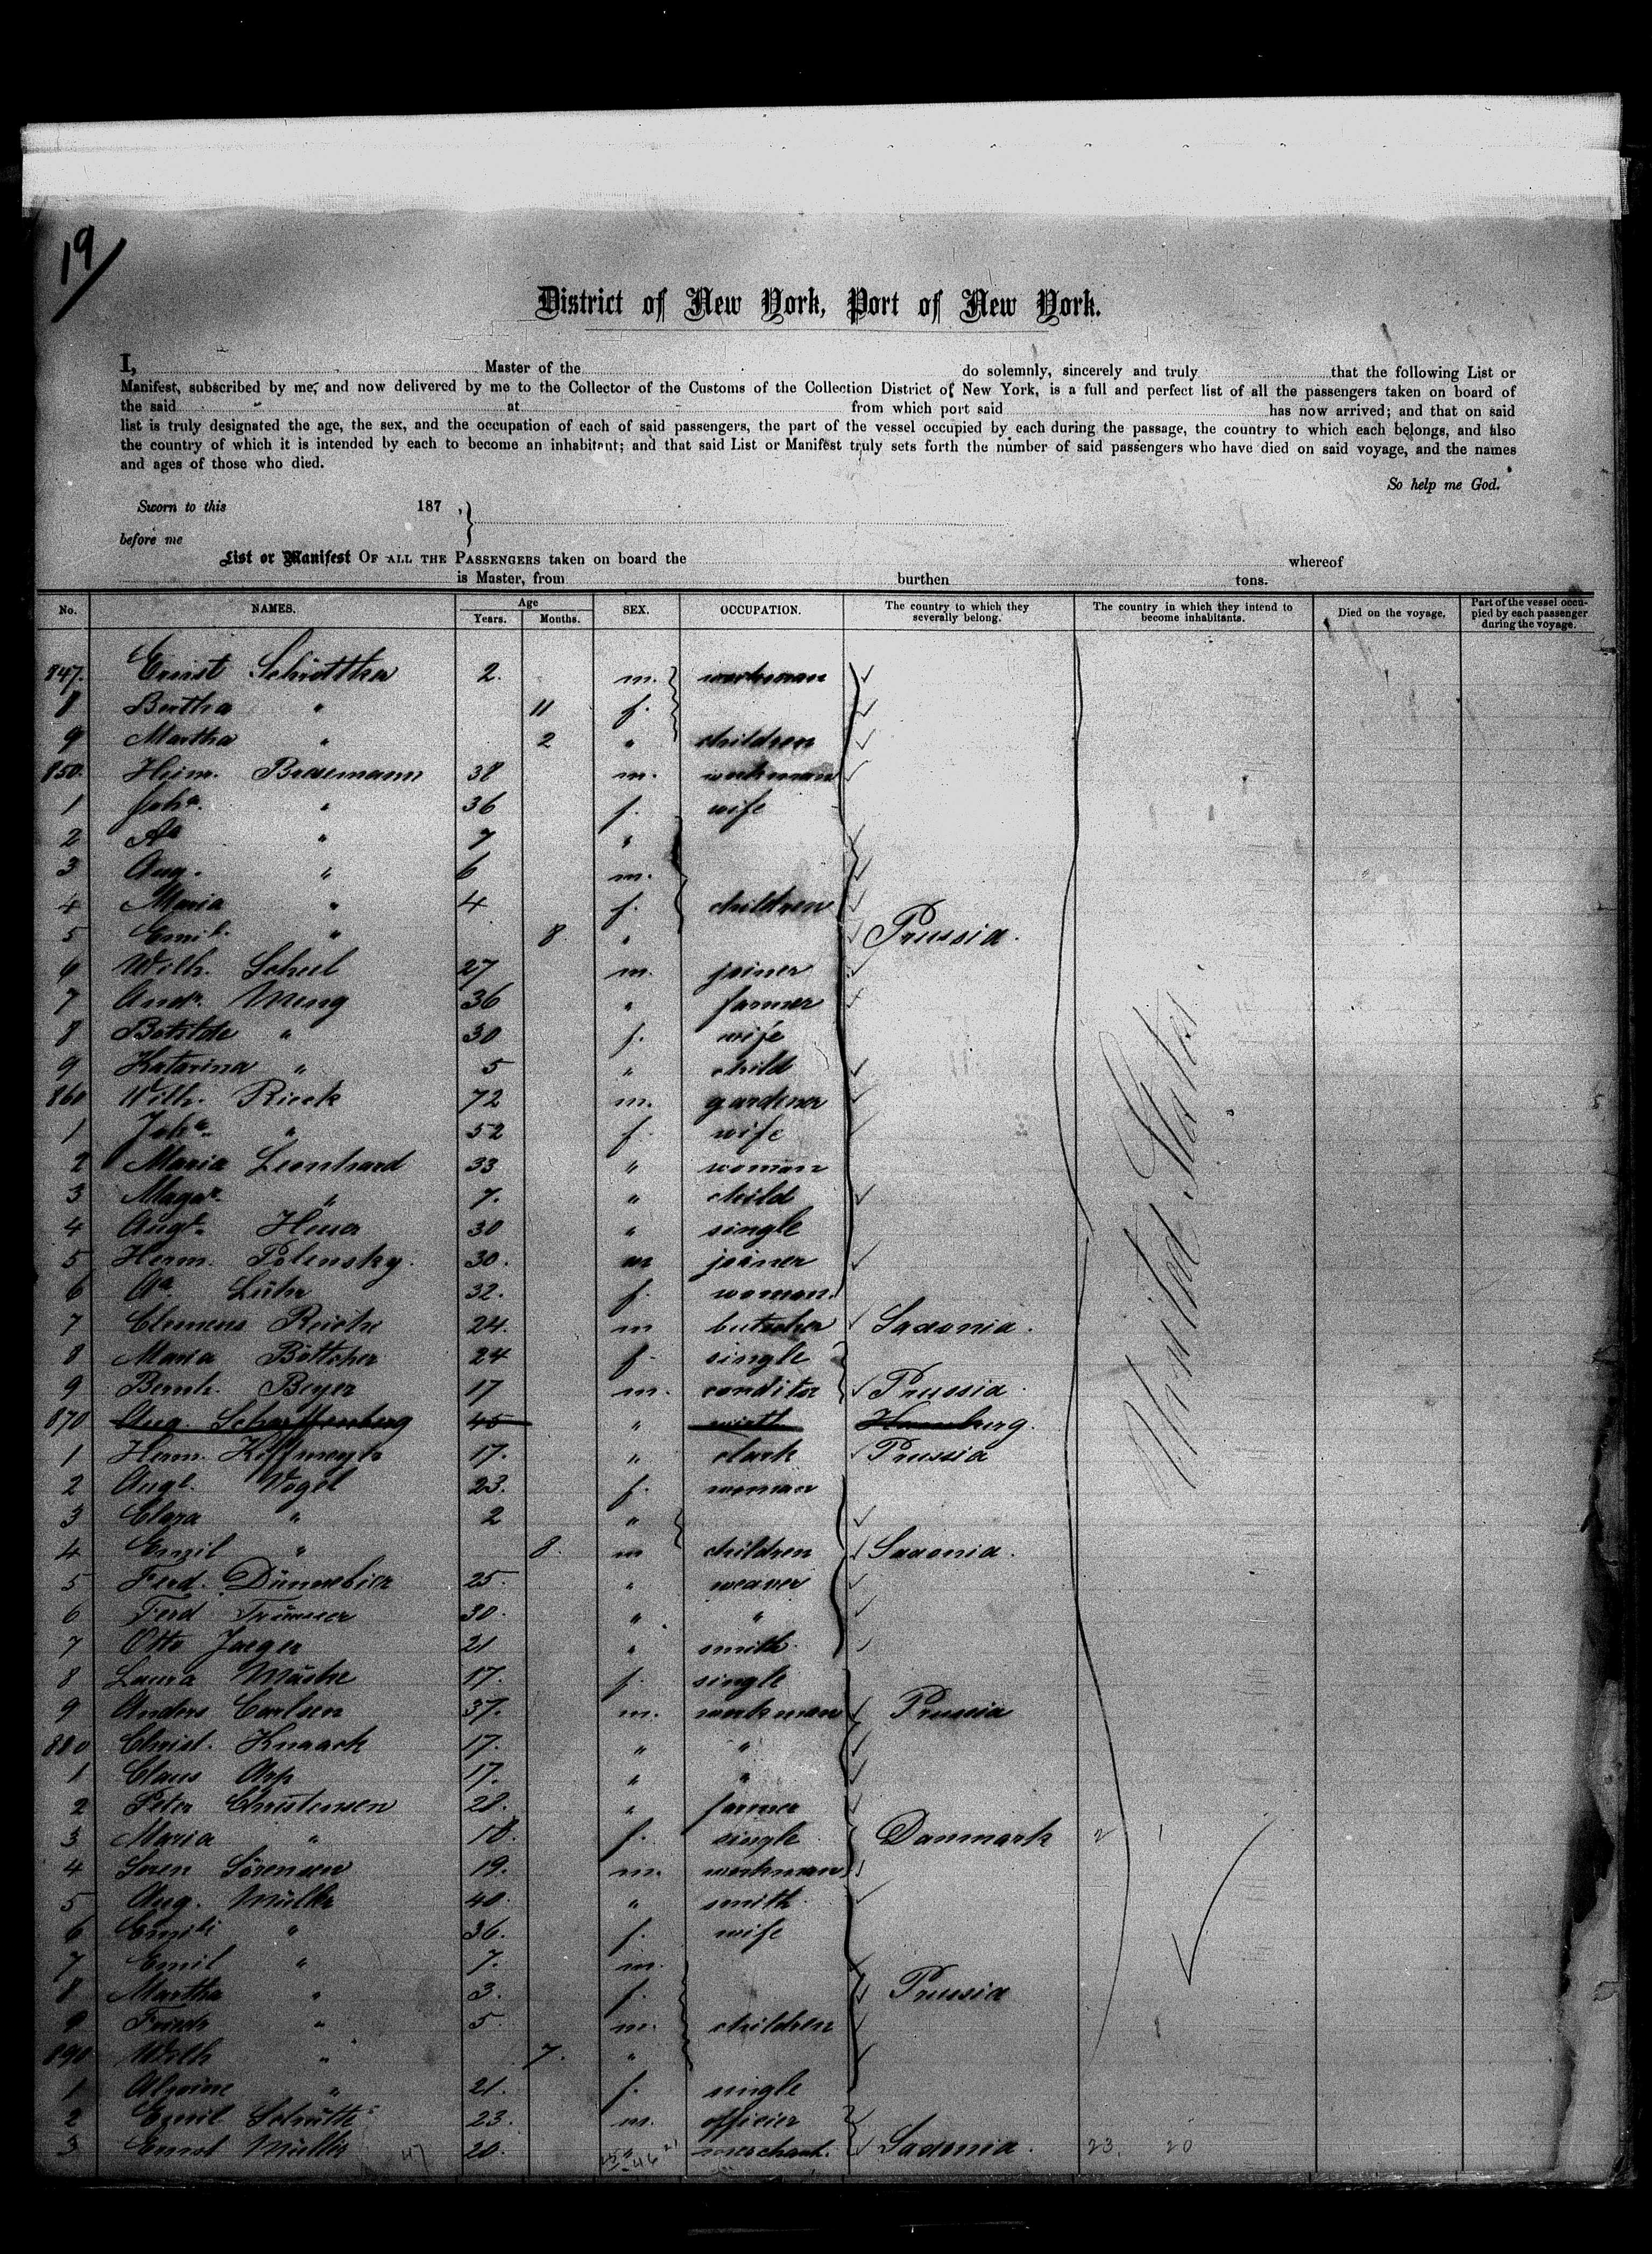 19/
District of New York, Port of New York.
I, Master of the do solemnly, sincerely and truly that the following List or
Manifest, subscribed by me, and now delivered by me to the Collector of the Customs of the Collection District of New York, is a full and perfect list of all the passengers taken on board of
the said at from which port said has now arrived; and that on said
list is truly designated the age, the sex, and the occupation of each of said passengers, the part of the vessel occupied by each during the passage, the country to which each belongs, and also
the country of which it is intended by each to become an inhabitant; and that said List or Manifest truly sets forth the number of said passengers who have died on said voyage, and the names
and ages of those who died.
So help me God.
Sworn to this 187 ,
before me
List or Manifest OF ALL THE PASSENGERS taken on board the whereof
is Master, from burthen tons.
No. NAMES. Age Years. Months. SEX. OCCUPATION. The country to which they severally belong. The country in which they intend to become inhabitants. Died on the voyage. Part of the vessel occupied by each passenger during the voyage.
847. Ernst 2. m. workman
8 Bertha " 11 f.
9 Martha " 2 " children
850. Heinr. 38 m. workman
1 Joha. " 36 f. wife
2 Aa " 7 "
3 Aug. " 6 m.
4 Maria " 4 f. children
5 Emil. " 8 " Prussia.
6 Wilh. Scheel 27 m. joiner
7 Andr. Meng 36 " farmer
8 " 30 f. wife
9 Katarina " 5 " child
860 Wilh. Rieck 72 m. gardener
1 Joha. " 52 f. wife
2 Maria Leonhard 33 " woman
3 " 7. " child
4 30 " single
5 Herm. Polensky. 30. m joiner
6 Aa. Lühr 32. f. woman.
7 Clemens 24. m butscher Saxonia.
8 Maria Böttcher 24 f. single
9 Bernh. Beyer 17 m. conditor Prussia.
870 Aug. Scharffenberg 45 " Hamburg.
1 Herm. 17. " clark Prussia
2 Vogel 23. f. woman
3 Clara " 2 "
4 Emil " 8. m children Saxonia.
5 Ferd. Dünnebier 25. " weaver
6 Ferd 30. " "
7 Otto Jaeger 21 " smith.
8 Laura 17. f. single
9 Anders Carlsen 37. m. workman Prussia
880 Christ. Knaack 17. " "
1 Claus Arp 17. " "
2 Peter Christensen 28. " farmer
3 Maria " 18. f. single Danmark 2 1
4 Sören Sörensen 19. m. workman
5 Aug. 40. " smith
6 " 36. f. wife
7 Emil " 7. m.
8 Martha " 3. f. Prussia
9 " 5 m. children
890 Wilh " 7. "
1 Alwine " 21. f. single
2 Emil 23. m. officier
3 Ernst Müller 47 20. " merchant. Saxonia. 23. 20
United States